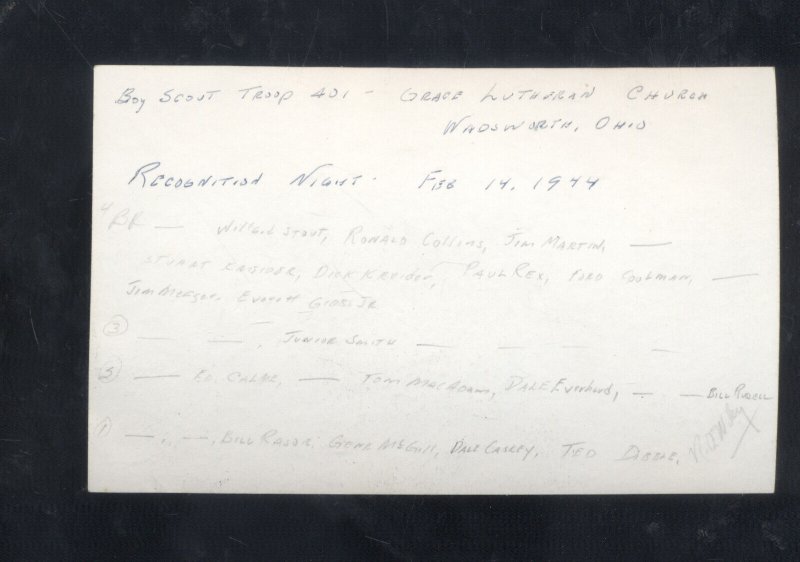 Boy Scout Troop 401 - Grace Lutheran Church
Wadsworth, Ohio
Recognition Night - Feb 14, 1944
BR — Stout, Ronald Collins, Jim Martin, —
Stuart Dick Kreider, Paul Rex, Ford —
Jim Everett Gibbs Jr
③ — — , Junior Smith — — — —
— Ed. — Tom MacAdam, Dale — — Bill
① — , — , Bill Rasor, Gene McGill, Dale Caskey, Ted Dibble,